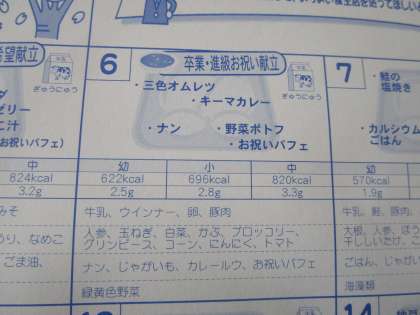 希望献立
6
卒業・進級お祝い献立
ぎゅうにゅう
ぎゅうにゅう
7
・三色オムレツ
・キーマカレー
・鮭の
塩焼き
ゼリー
に汁
お祝いパフェ
・ナン
・野菜ポトフ
・お祝いパフェ
カルシウム
ごはん
中
幼
小
中
幼
824kcal
622kcal
696kcal
820kcal
570kcal
3.2g
2.5g
2.8g
3.3g
1.9g
みそ
牛乳、ウインナー、卵、豚肉
牛乳、鮭、豚肉、
うり、なめこ
人参、玉ねぎ、白菜、かぶ、ブロッコリー、
グリンピース、コーン、にんにく、トマト
大根、人参、ほう
干ししいたけ、
ごま油、
ナン、じゃがいも、カレールウ、お祝いパフェ
ごはん、じゃがい
緑黄色野菜
海藻類
14